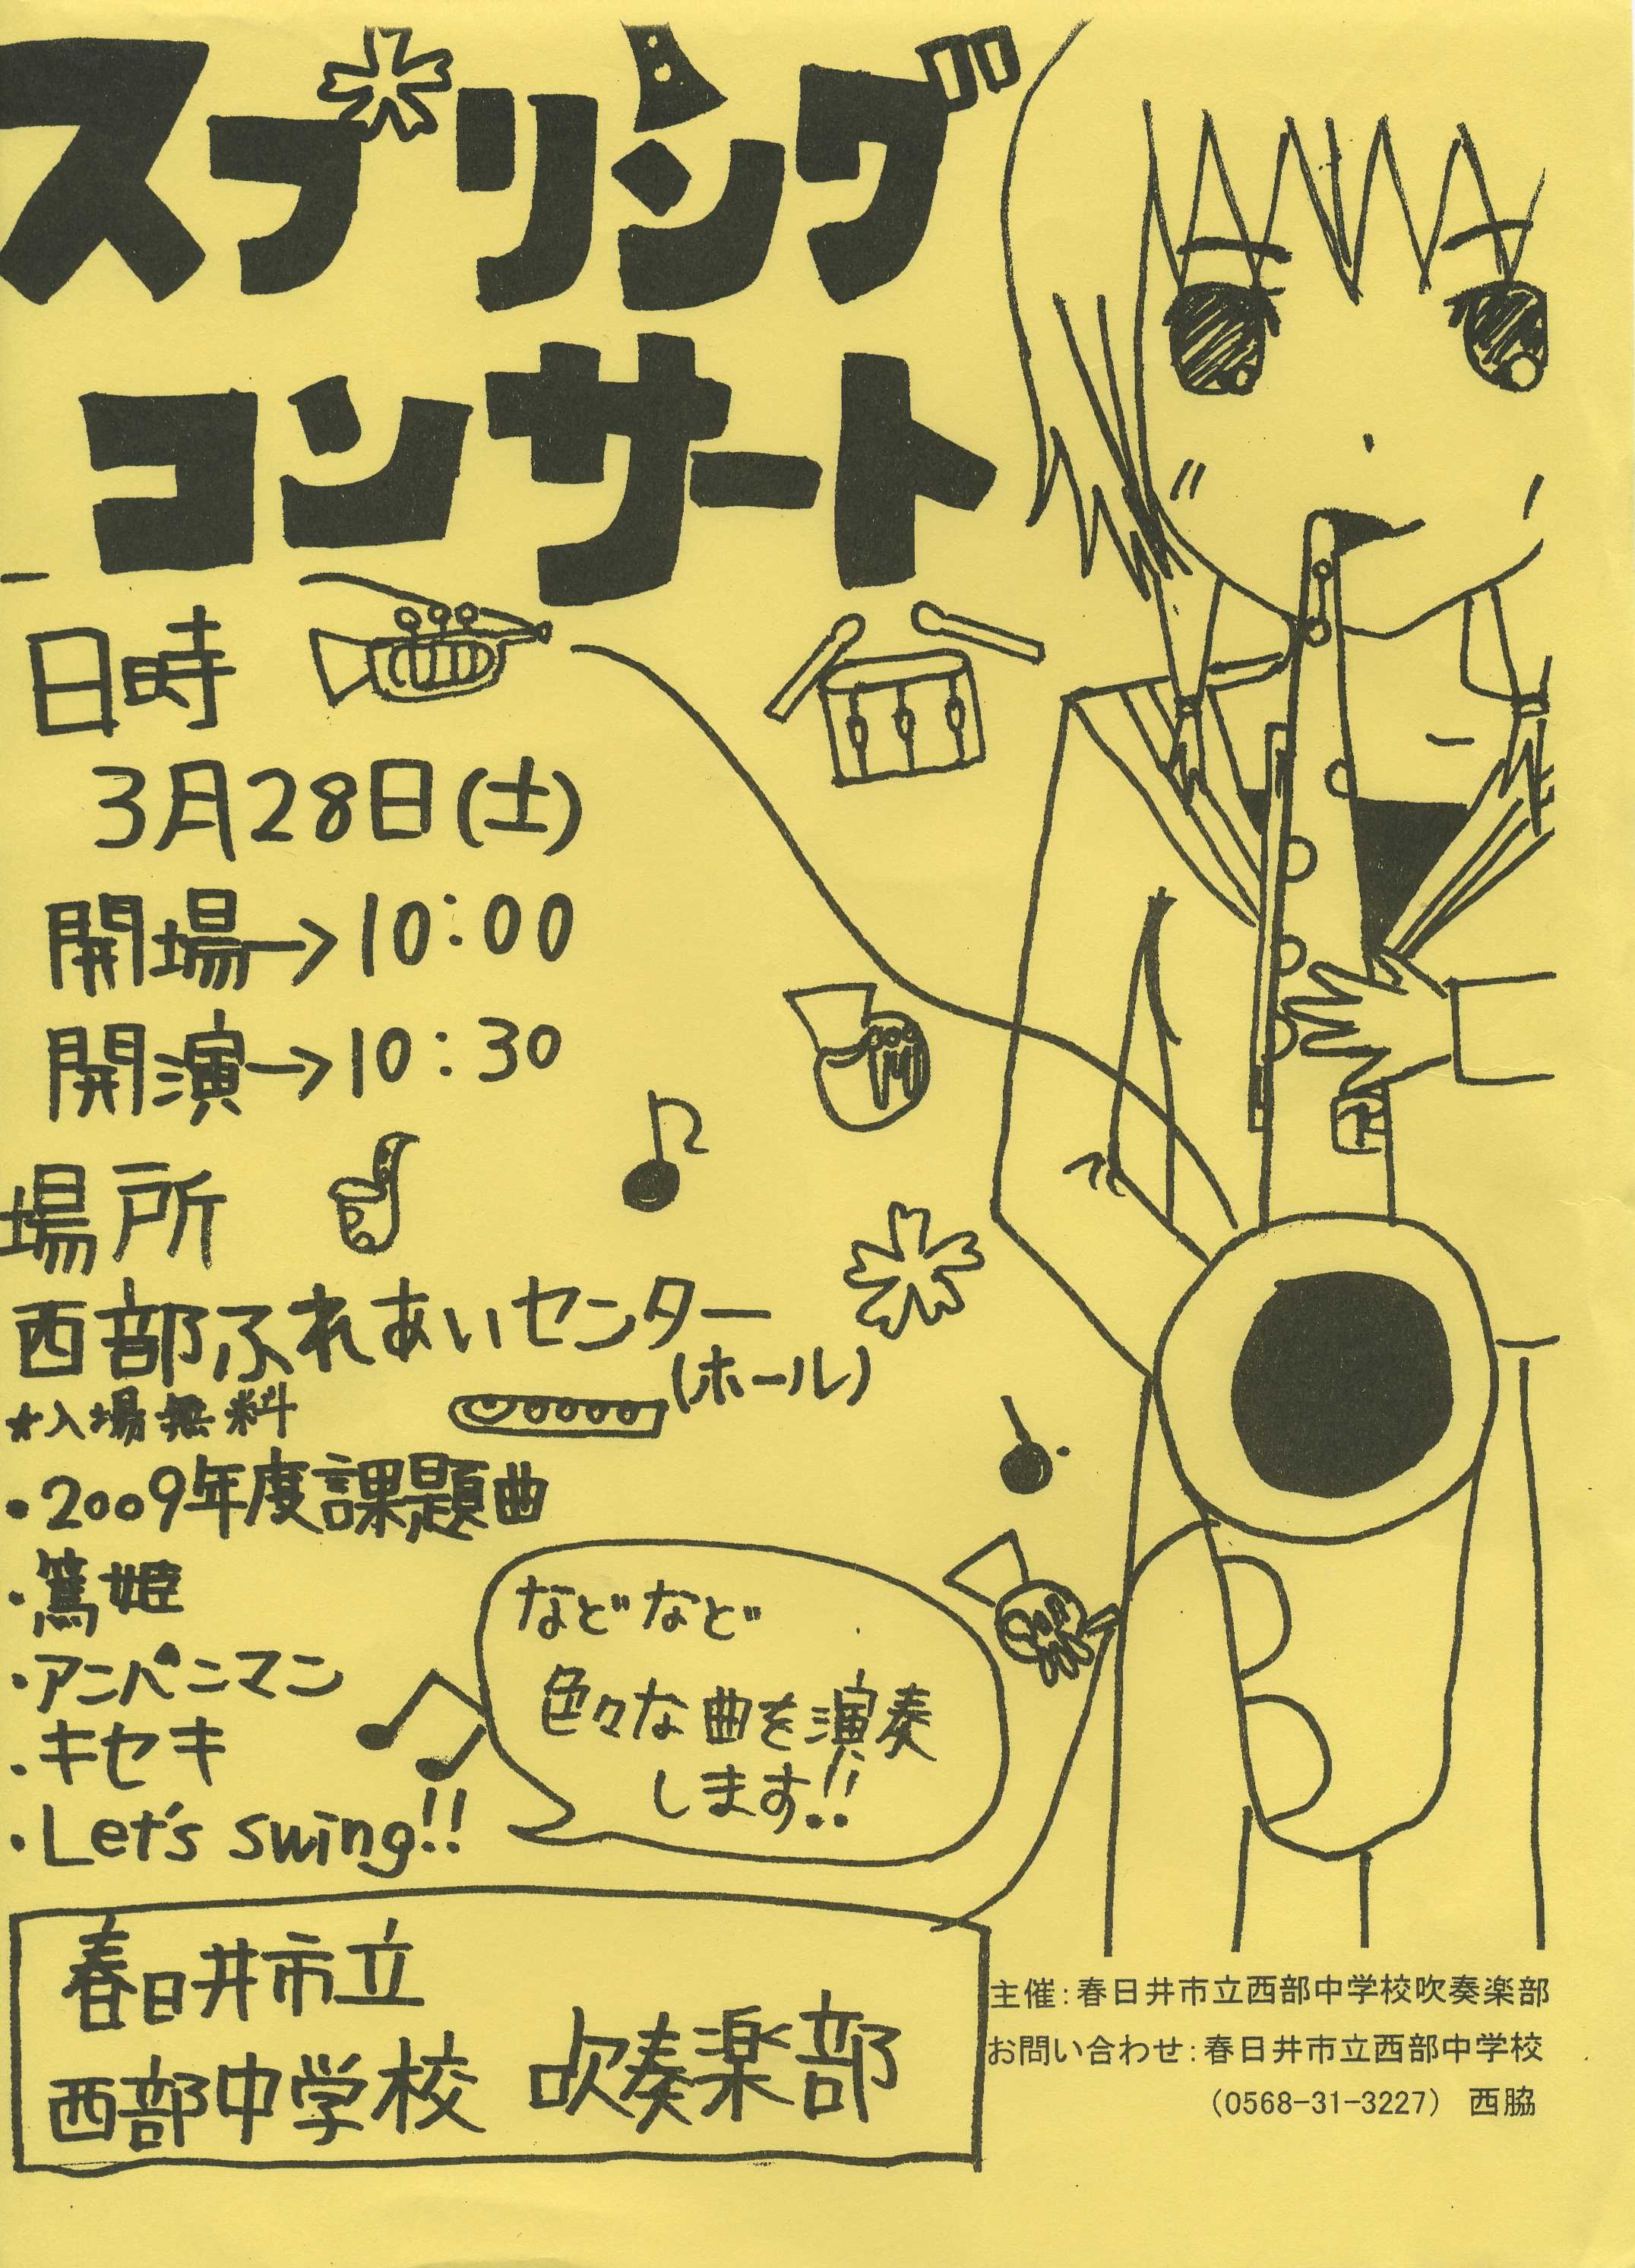 スプリング
コンサート
日時
3月28日(土)
開場→10:00
開演→10:30
場所
西部ふれあいセンター
(ホール)
★入場無料
・2009年度課題曲
・篤姫
・アンパンマン
・キセキ
・Let's swing!!
などなど
色々な曲を演奏
します!!
春日井市立
西部中学校 吹奏楽部
主催:春日井市立西部中学校吹奏楽部
お問い合わせ:春日井市立西部中学校
(0568-31-3227) 西脇